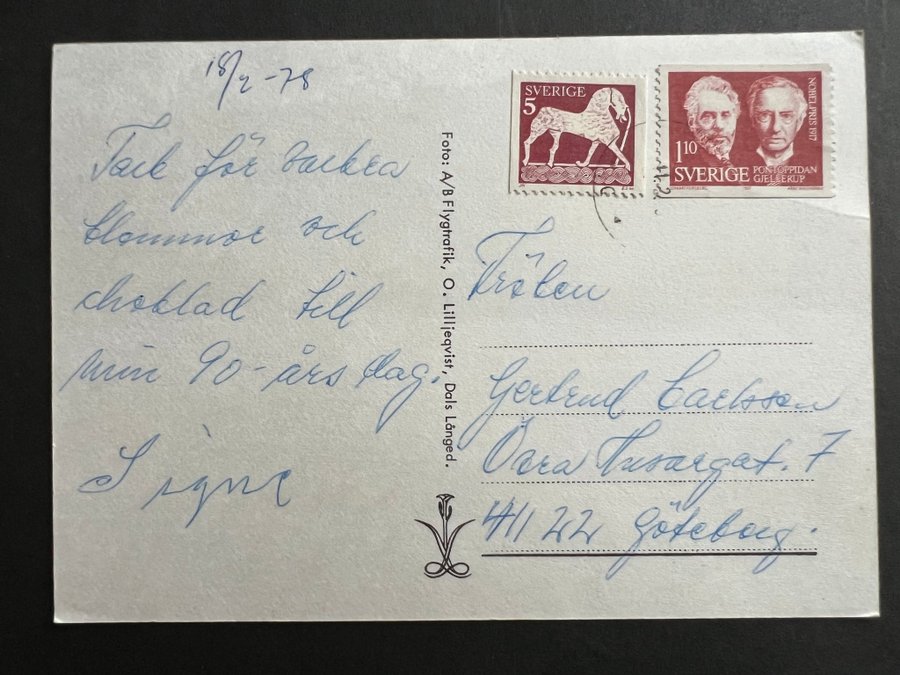 18/2 -78
Tack för vackra
blommor och
choklad till
min 90-års dag.
Signe
Foto: A/B Flygtrafik, O. Lilljeqvist, Dals Långed.
SVERIGE
5
NOBELPRIS 1917
110
SVERIGE
PONTOPPIDAN
GJELLERUP
Fröken
Gertrud Carlsson
Övra Husargat. 7
411 22 Göteborg.